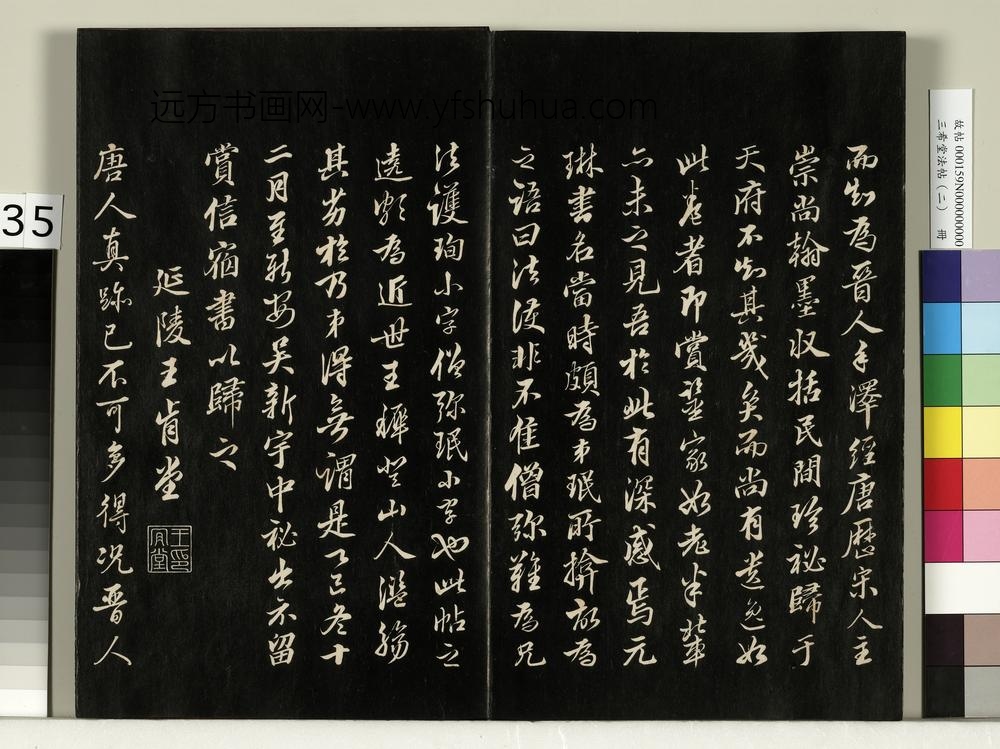 而知爲晉人手澤經唐歷宋人主
崇尚翰墨收括民間珍秘歸于
天府不知其幾矣而尚有遺逸如
此卷者即賞鑒家如老米輩
亦未之見吾於此有深感焉元
琳書名當時頗爲弟珉所揜故爲
之語曰法護非不佳僧彌難爲兄
法護珣小字僧彌珉小字也此帖之
遒
爲近世王穉登山人濫觴
其劣於乃弟得無謂是乙巳冬十
二月至新安吳新宇中秘出不留
賞信宿書以歸之
延陵王肯堂
王肯堂印
唐人真跡已不可多得況晉人
远方书画网-www.yfshuhua.com
35
故帖 000159N000000000
三希堂法帖（二） 冊